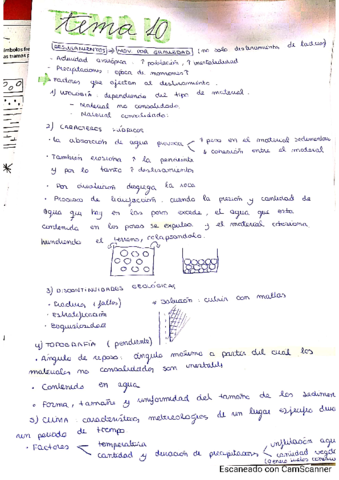 tema 10
DESLIZAMIENTOS → MOV. POR GRAVEDAD (no solo deslizamiento de ladera)
• Actividad antrópica: ↑ población, ↑ inestabilidad
• Precipitaciones: época de monzones ↑
Factores que afectan al deslizamiento.
1) LITOLOGÍA: dependiendo del tipo de material.
- Material no consolidado.
- Material consolidado.
2) CARACTERES HÍDRICOS
• La absorción de agua provoca ↑ peso en el material sedimentario
↓ cohesión entre el material
• También erosiona ↑ la pendiente
y por lo tanto ↑ deslizamientos
• Por disolución disgrega la roca
• Proceso de licuefacción: cuando la presión y cantidad de
agua que hay en los poros excede, el agua que está
contenida en los poros se expulsa y el material
hundiendo el terreno,
3) DISCONTINUIDADES GEOLÓGICAS
• Fracturas (fallas)
• Solución: cubrir con mallas
• Estratificación
• Esquistosidad
4) TOPOGRAFÍA (pendiente)
• Ángulo de reposo: ángulo máximo a partir del cual los
materiales no consolidados son inestables
• Contenido en agua
• Forma, tamaño y uniformidad del tamaño de los sedimen
5) CLIMA: características meteorológicas de un lugar específico dura
un periodo de tiempo
• Factores
temperatura
cantidad y duración de precipitaciones
infiltración agua
cantidad veget
Escaneado con CamScanner